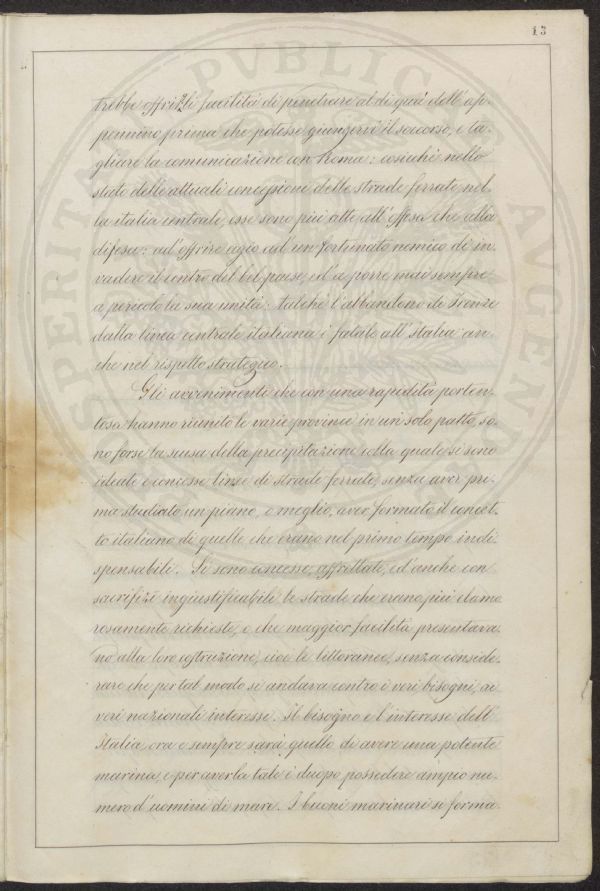 13
trebbe offrirgli facilità di penetrare al di quà dell'ap-
pennino prima che potesse giungervi il soccorso, e ta-
gliare la comunicazione con Roma: cosicchè nello
stato delle attuali concessioni delle strade ferrate nel-
la italia centrale, esse sono più atte all'offesa che alla
difesa: ad'offrire agio ad un fortunato nemico di in-
vadere il centro del bel paese, ed'a porre mai sempre
a pericolo la sua unità: talchè l'abbandono di Firenze
dalla linea centrale italiana è fatale all'Italia an-
che nel rispetto strategico.
Gli avvenimenti che con una rapidità porten-
tosa hanno riunito le varie provincie in un solo patto, so-
no forse la scusa della precipitazione colla quale si sono
ideate e concesse linee di strade ferrate, senza aver pri-
ma studiato un piano, o meglio, aver formato il concet-
to italiano di quelle che erano nel primo tempo indi-
spensabili. Si sono concesse, affrettate, ed'anche con
sacrifizi ingiustificabili le strade che erano più clamo
rosamente richieste, o che maggior facilità presentava-
no alla loro costruzione, cioè le littoranee, senza conside-
rare che per tal modo si andava contro i veri bisogni, ai
veri nazionali interessi. Il bisogno e l'interesse dell'
Italia, ora e sempre sarà quello di avere una potente
marina, e per averla tale è duopo possedere ampio nu-
mero d'uomini di mare. I buoni marinari si forma-
PERITAN
PVBLIC
AVGEND